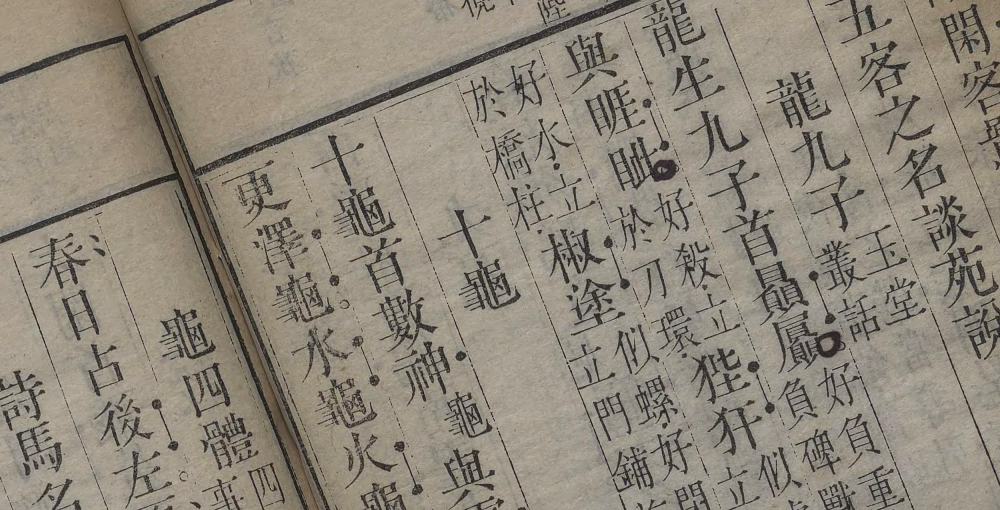 閑客
五客之名談苑
龍九子
玉堂
叢話
龍生九子首贔屭
好負重
負碑
狴犴
似
立
與睚眦
好殺立
於刀環
椒塗
似螺好
立門鋪
好水立
於橋柱
十龜
十龜首數神龜與
叓澤龜水龜火龜
龜四體
四
春日占後左
詩馬名